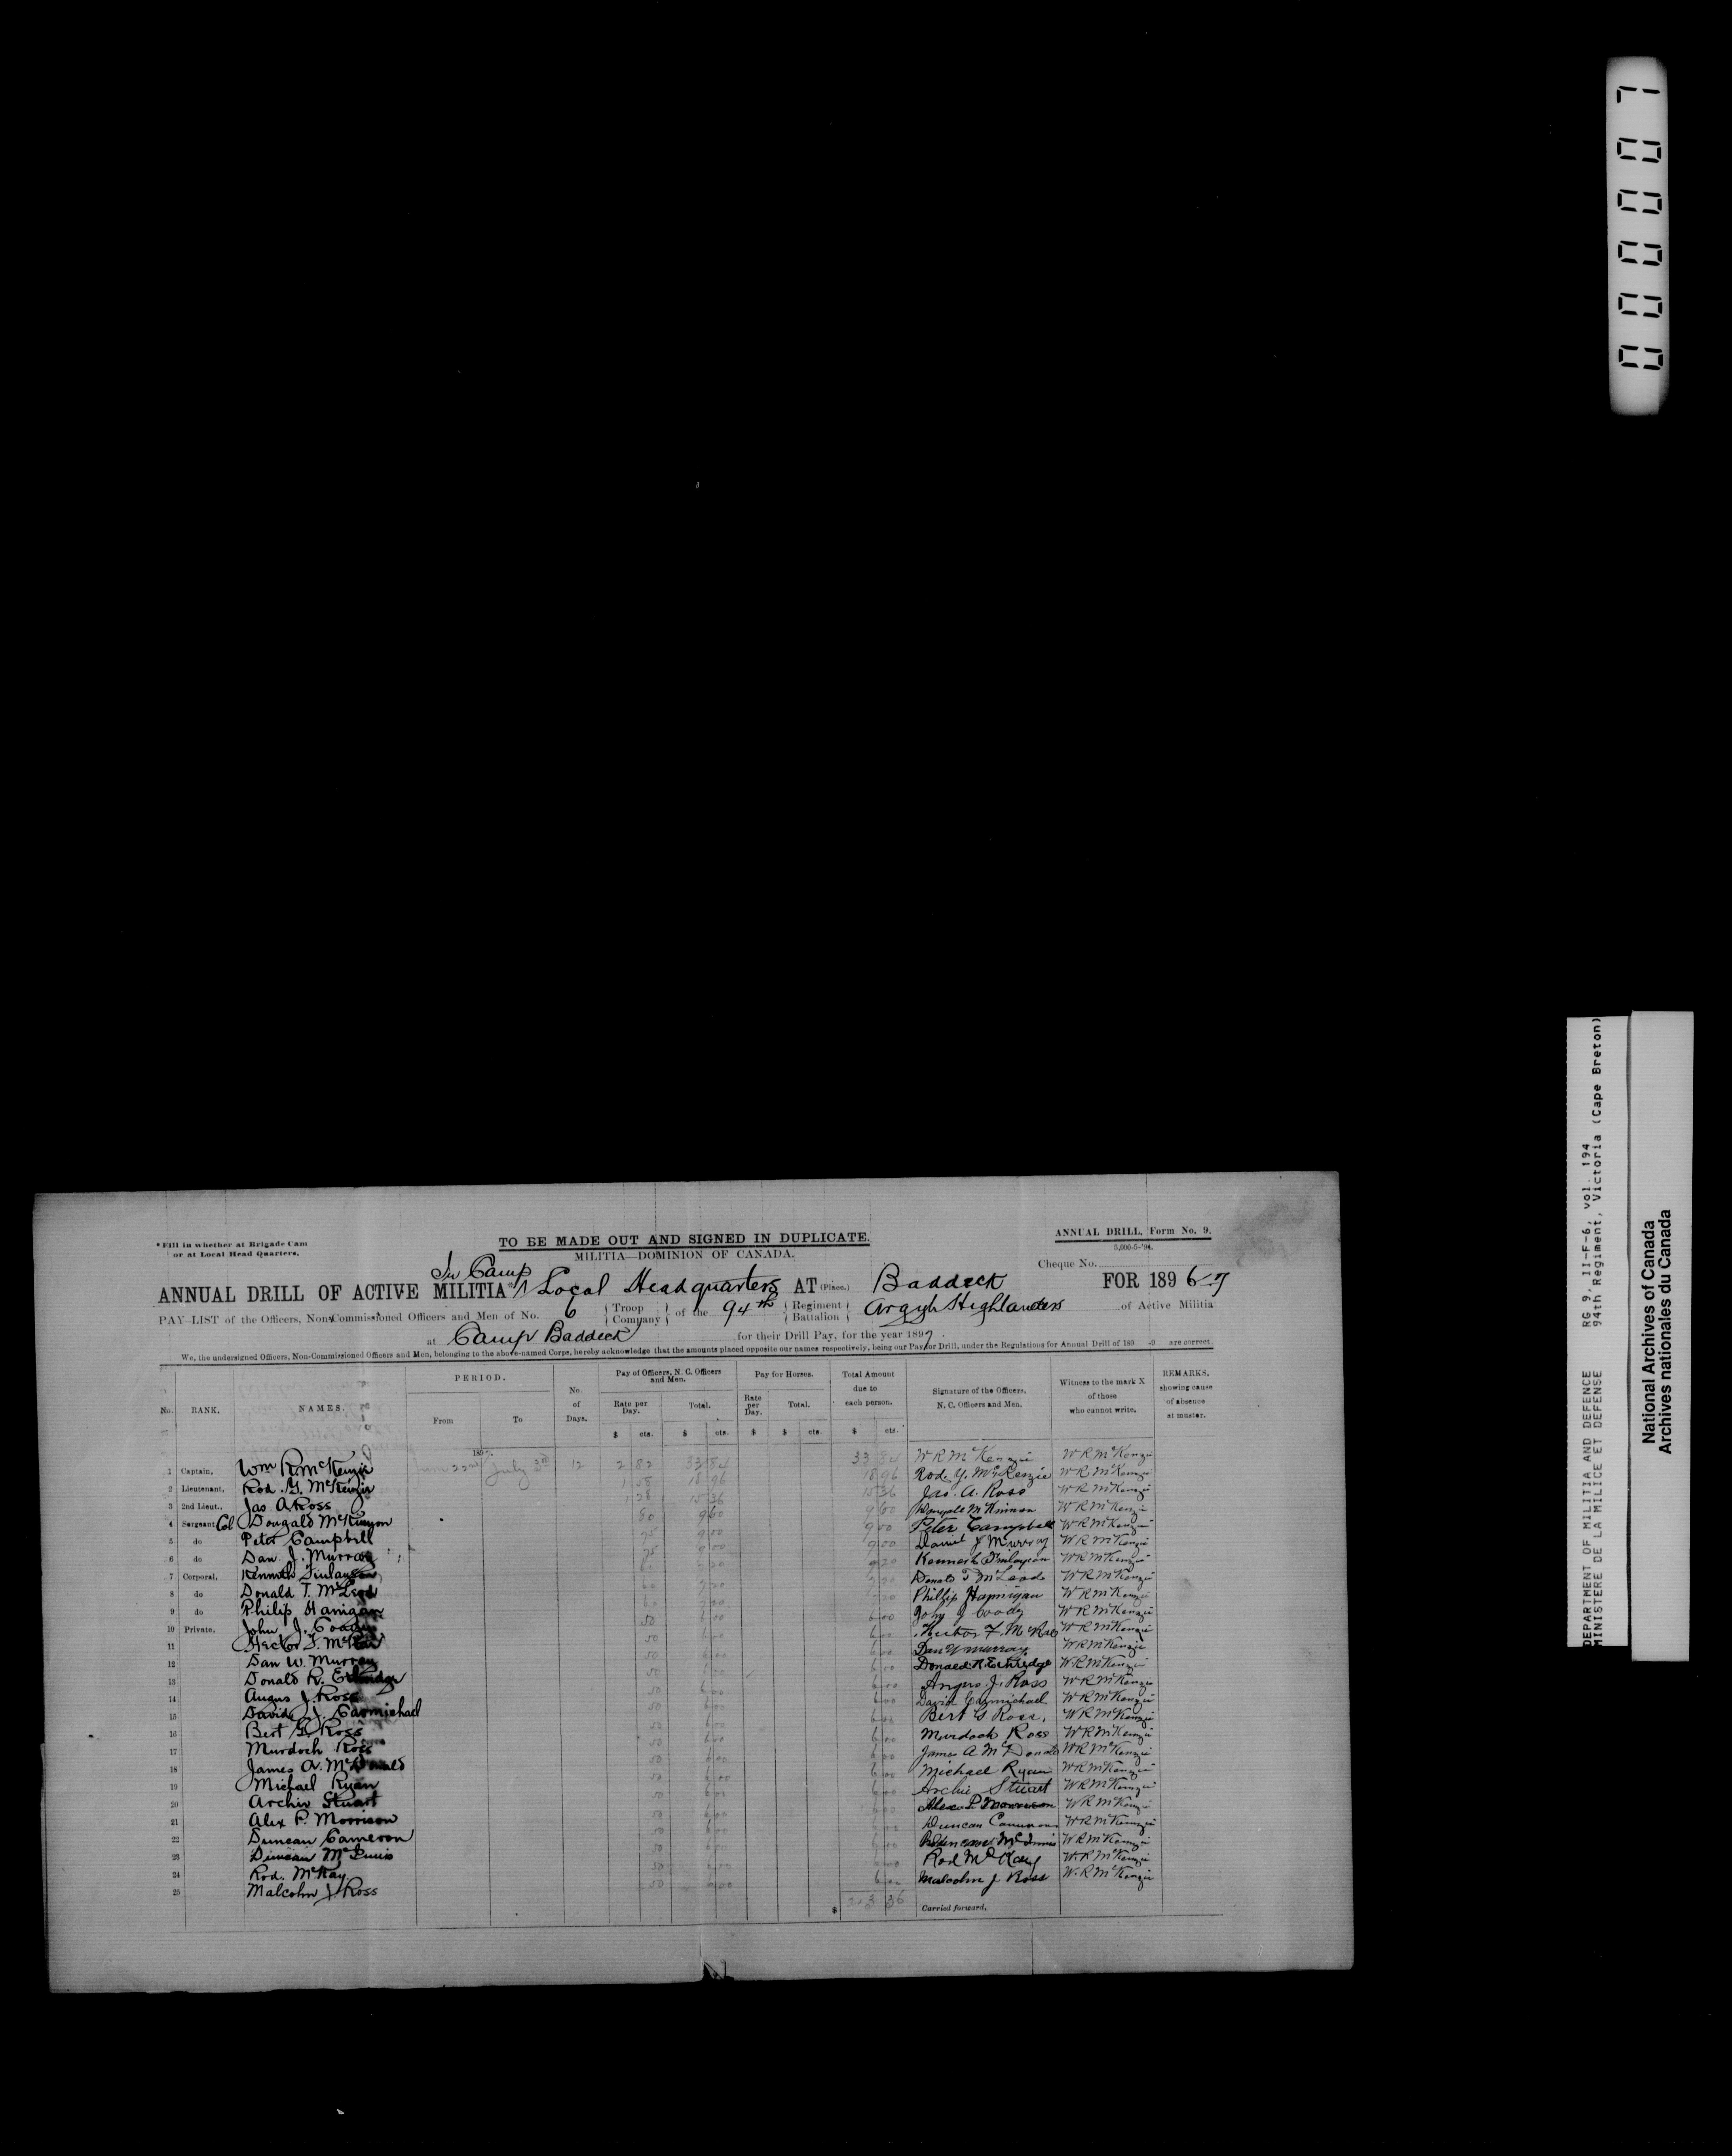 000007
DEPARTMENT OF MILITIA AND DEFENCE RG 9, II-F-6, vol. 194
MINISTERE DE LA MILICE ET DEFENSE 94th Regiment, Victoria (Cape Breton)
National Archives of Canada
Archives nationales du Canada
* Fill in whether at Brigade Cam
or at Local Head Quarters.
TO BE MADE OUT AND SIGNED IN DUPLICATE.
MILITIA—DOMINION OF CANADA.
ANNUAL DRILL, Form No. 9.
5,000-5-'94.
Cheque No.
In Camp
ANNUAL DRILL OF ACTIVE MILITIA* Local Headquarters AT (Place.) Baddeck FOR 189 6-7
PAY-LIST of the Officers, Non-Commissioned Officers and Men of No. 6 { Troop Company } of the 94th { Regiment Battalion } Argyle Highlanders of Active Militia
at Camp Baddeck for their Drill Pay, for the year 1897.
We, the undersigned Officers, Non-Commissioned Officers and Men, belonging to the above-named Corps, hereby acknowledge that the amounts placed opposite our names respectively, being our Pay for Drill, under the Regulations for Annual Drill of 189 -9 are correct.
No. RANK. NAMES. PERIOD. From To No. of Days. Pay of Officers, N. C. Officers and Men. Rate per Day. $ cts. Total. $ cts. Pay for Horses. Rate per Day. $ Total. $ cts. Total Amount due to each person. $ cts. Signature of the Officers, N. C. Officers and Men. Witness to the mark X of those who cannot write. REMARKS. showing cause of absence at muster.
189
1 Captain, Wm R. McKenzie June 22nd July 3rd 12 2 82 33 84 33 84 W R McKenzie W R McKenzie
2 Lieutenant, Rod. G. McKenzie 1 58 18 96 18 96 Rod. G. McKenzie W R McKenzie
3 2nd Lieut., Jas. A. Ross 1 28 15 36 15 36 Jas. A. Ross W R McKenzie
4 Sergeant Col Dougald McKinnon 80 9 60 9 60 Dougald McKinnon W R McKenzie
5 do Peter Campbell 75 9 00 9 00 Peter Campbell W R McKenzie
6 do Dan. J. Murray 75 9 00 9 00 Daniel J Murray W R McKenzie
7 Corporal, Kenneth Finlayson 7 20 Kenneth Finlayson W R McKenzie
8 do Donald T. McLeod 7 20 Donald T McLeod W R McKenzie
9 do Philip Hanigan 7 20 Phillip Hannigan W R McKenzie
10 Private, John J. 50 6 00 6 00 John J Coody W R McKenzie
11 Hector F. McRae 50 6 00 6 00 Hector F. McRae W R McKenzie
12 Dan W. Murray 50 6 00 6 00 Dan W Murray W R McKenzie
13 Donald R. Ethridge 50 6 00 6 00 Donald R. Ethridge W R McKenzie
14 Angus J. Ross 50 6 00 6 00 Angus J. Ross W R McKenzie
15 David J. Carmichael 50 6 00 6 00 David Carmichael W R McKenzie
16 Bert G. Ross 50 6 00 6 00 Bert G Ross. W R McKenzie
17 Murdoch Ross 50 6 00 6 00 Murdoch Ross W R McKenzie
18 James A. McDonald 50 6 00 6 00 James A McDonald W R McKenzie
19 Michael Ryan 50 6 00 6 00 Michael Ryan W R McKenzie
20 Archie Stuart 50 6 00 6 00 Archie Stuart W R McKenzie
21 Alex P. Morrison 50 6 00 6 00 Alex P Morrison W R McKenzie
22 Duncan Cameron 50 6 00 6 00 Duncan Cameron W R McKenzie
23 Duncan McInnis 50 6 00 6 00 Duncan McInnis W R McKenzie
24 Rod. McKay 50 6 00 6 00 Rod McKay W R McKenzie
25 Malcolm J. Ross 50 6 00 6 00 Malcolm J Ross W. R McKenzie
$ 213 36 Carried forward.